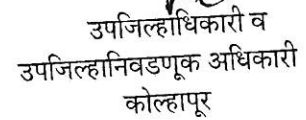 उपजिल्हाधिकारी व
उपजिल्हानिवडणूक अधिकारी
कोल्हापूर